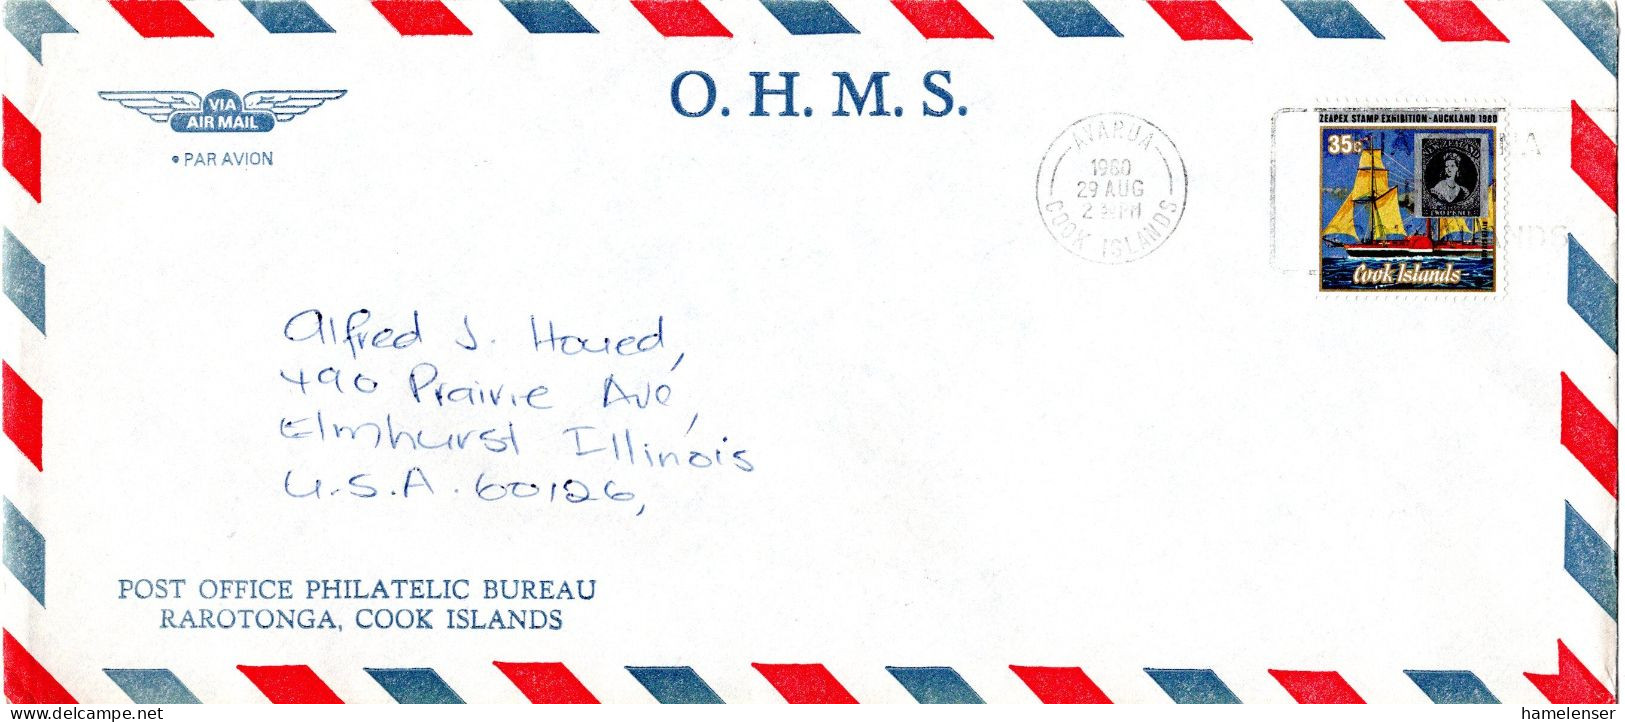 O. H. M. S.
VIA
AIR MAIL
• PAR AVION
AVARUA
1980
29 AUG
2 PM
COOK ISLANDS
ZEAPEX STAMP EXHIBITION - AUCKLAND 1980
35c
NEW ZEALAND
TWO PENCE
Cook Islands
Alfred J. Houed,
490 Prairie Ave,
Elmhurst Illinois
U.S.A. 60126,
POST OFFICE PHILATELIC BUREAU
RAROTONGA, COOK ISLANDS
delcampe.net
hamelenser